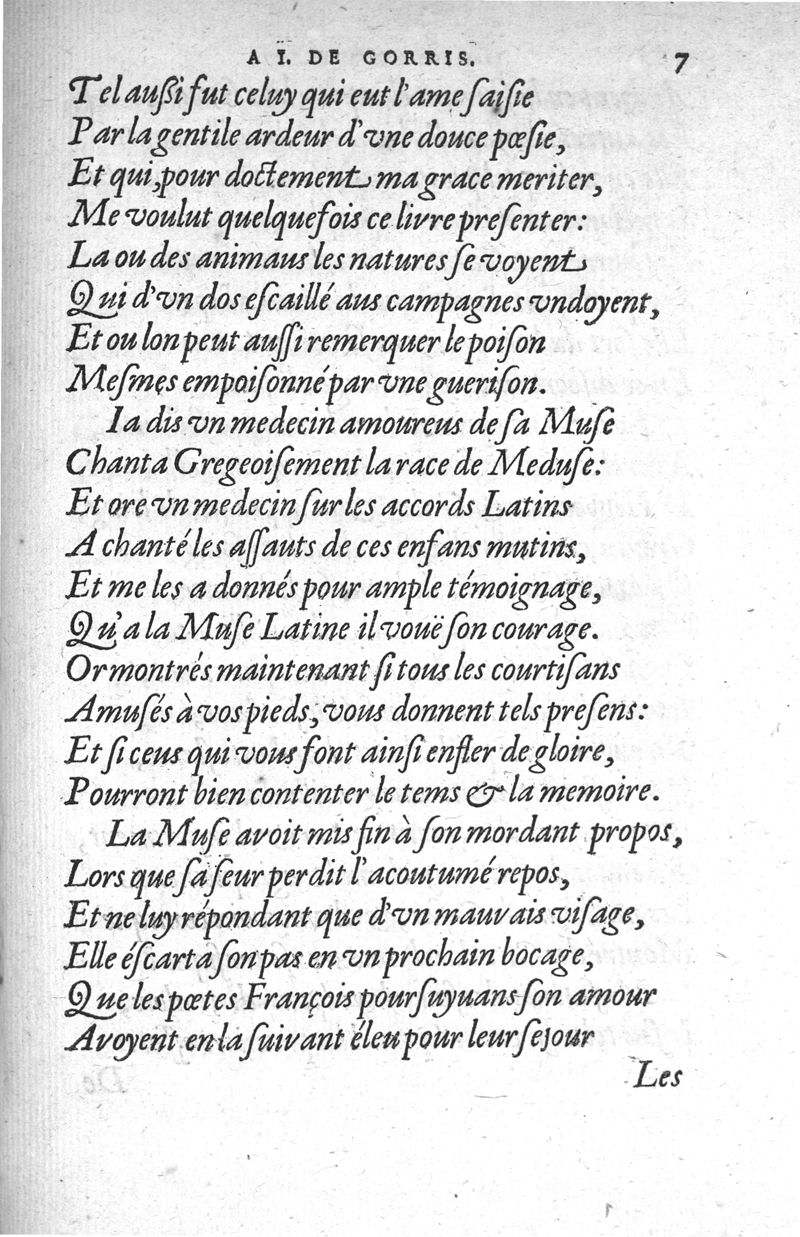 A I. DE GORRIS. 7
Tel außi fut celuy qui eut l'ame ſaiſie
Par la gentile ardeur d'vne douce pœſie,
Et qui, pour doctement ma grace meriter,
Me voulut quelquefois ce livre preſenter:
La ou des animaus les natures ſe voyent
Qui d'vn dos eſcaillé aus campagnes vndoyent,
Et ou lon peut auſſi remerquer le poiſon
Meſmes empoiſonné par vne gueriſon.
Ia dis vn medecin amoureus de ſa Muſe
Chanta Gregeoiſement la race de Meduſe:
Et ore vn medecin ſur les accords Latins
A chanté les aſſauts de ces enfans mutins,
Et me les a donnés pour ample témoignage,
Qu'a la Muſe Latine il vouë ſon courage.
Or montrés maintenant ſi tous les courtiſans
Amuſés à vos pieds, vous donnent tels preſens:
Et ſi ceus qui vous font ainſi enfler de gloire,
Pourront bien contenter le tems & la memoire.
La Muſe avoit mis fin à ſon mordant propos,
Lors que ſa ſeur perdit l'acoutumé repos,
Et ne luy répondant que d'vn mauvais viſage,
Elle éſcarta ſon pas en vn prochain bocage,
Que les pœtes François pourſuyuans ſon amour
Avoyent en la ſuivant éleu pour leur ſejour
Les